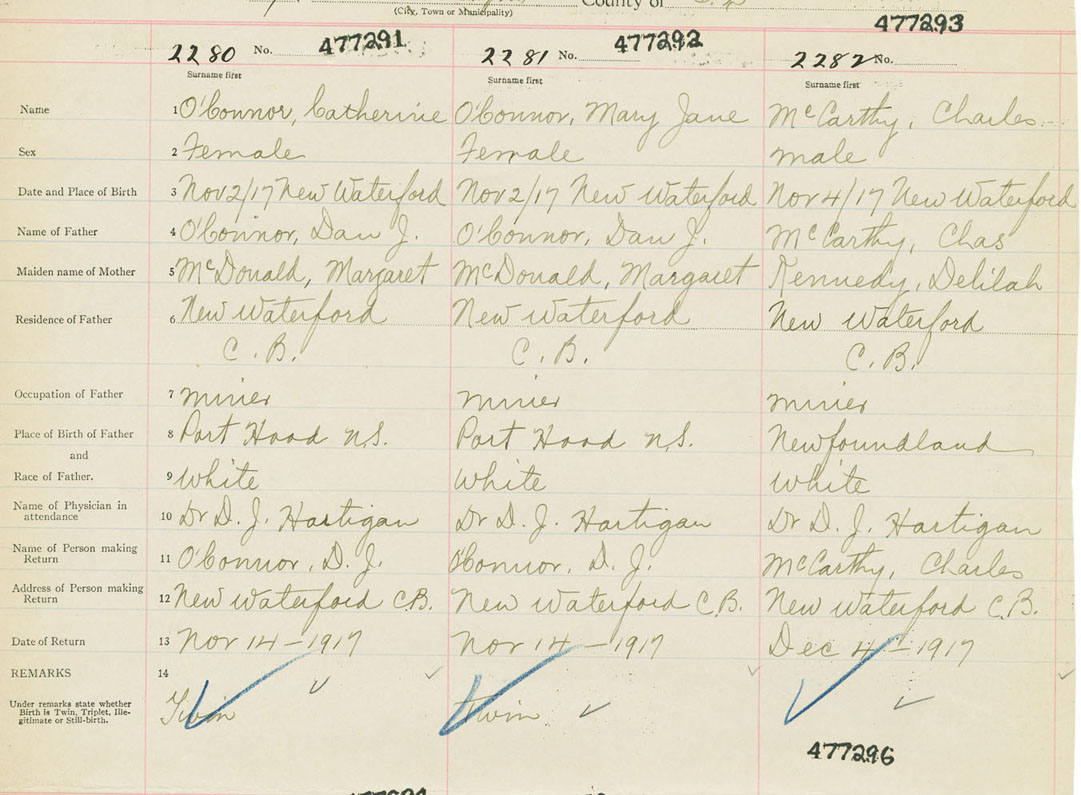 County of
(City, Town or Municipality)
477293
2280 No. 477291 2281 No. 477292 2282 No.
Surname first Surname first Surname first
Name 1 O'Connor, Catherine O'Connor, Mary Jane McCarthy, Charles
Sex 2 Female Female male
Date and Place of Birth 3 Nov 2/17 New Waterford Nov 2/17 New Waterford Nov 4/17 New Waterford
Name of Father 4 O'Connor, Dan J. O'Connor, Dan J. McCarthy, Chas
Maiden name of Mother 5 McDonald, Margaret McDonald, Margaret Kennedy, Delilah
Residence of Father 6 New Waterford New Waterford New Waterford
C. B. C. B. C. B.
Occupation of Father 7 miner miner miner
Place of Birth of Father 8 Port Hood N.S. Port Hood N.S. Newfoundland
and
Race of Father. 9 White White White
Name of Physician in attendance 10 Dr D. J. Hartigan Dr D. J. Hartigan Dr D. J. Hartigan
Name of Person making Return 11 O'Connor, D. J. O'Connor, D. J. McCarthy, Charles
Address of Person making Return 12 New Waterford C.B. New Waterford C.B. New Waterford C.B.
Date of Return 13 Nov 14 - 1917 Nov 14 - 1917 Dec 4 - 1917
REMARKS 14
Under remarks state whether
Birth is Twin, Triplet, Ille-
gitimate or Still-birth.
Twin Twin
477296